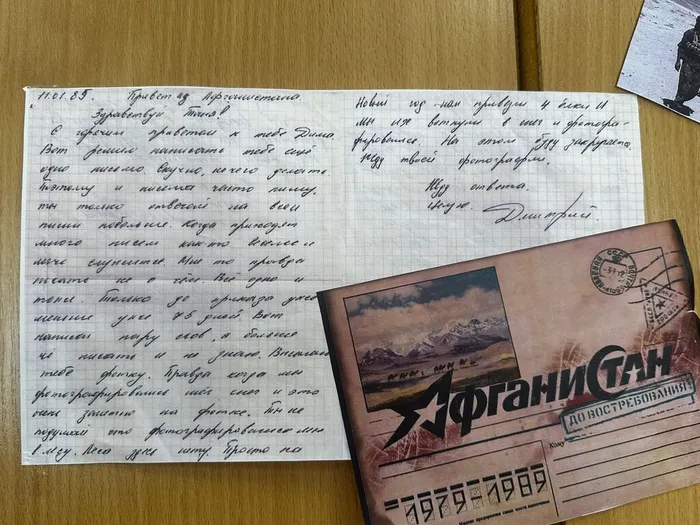 11.01.85. Привет из Афганистана
Здравствуй Таня!
С горячим приветом к тебе Дима.
Вот решил написать тебе ещё
одно письмо. Скучно, нечего делать.
Поэтому и письма часто пишу.
ты только отвечай на всех
пиши побольше. Когда приходят
много писем как-то
легче служится. Мне то правда
писать не о чём. Всё одно и
тоже. Только до приказа уже
меньше уже 75 дней. Вот
написал пару слов, а больше
че писать и не знаю. Высылаю
тебе фотку. Правда когда мы
фотографировались шёл снег и это
очень заметно на фотке. Ты не
подумай что фотографировались мы
в лесу. Леса здесь нету. Просто на
Новый год нам привезли 4 ёлки и
мы их воткнули в снег и фотогра-
фировались. На этом буду закругляться.
Жду твоей фотографии.
Жду ответа.
Целую.
Дмитрий.
АфганиСтан
ДО ВОСТРЕБОВАНИЯ!
Кому
1979-1989